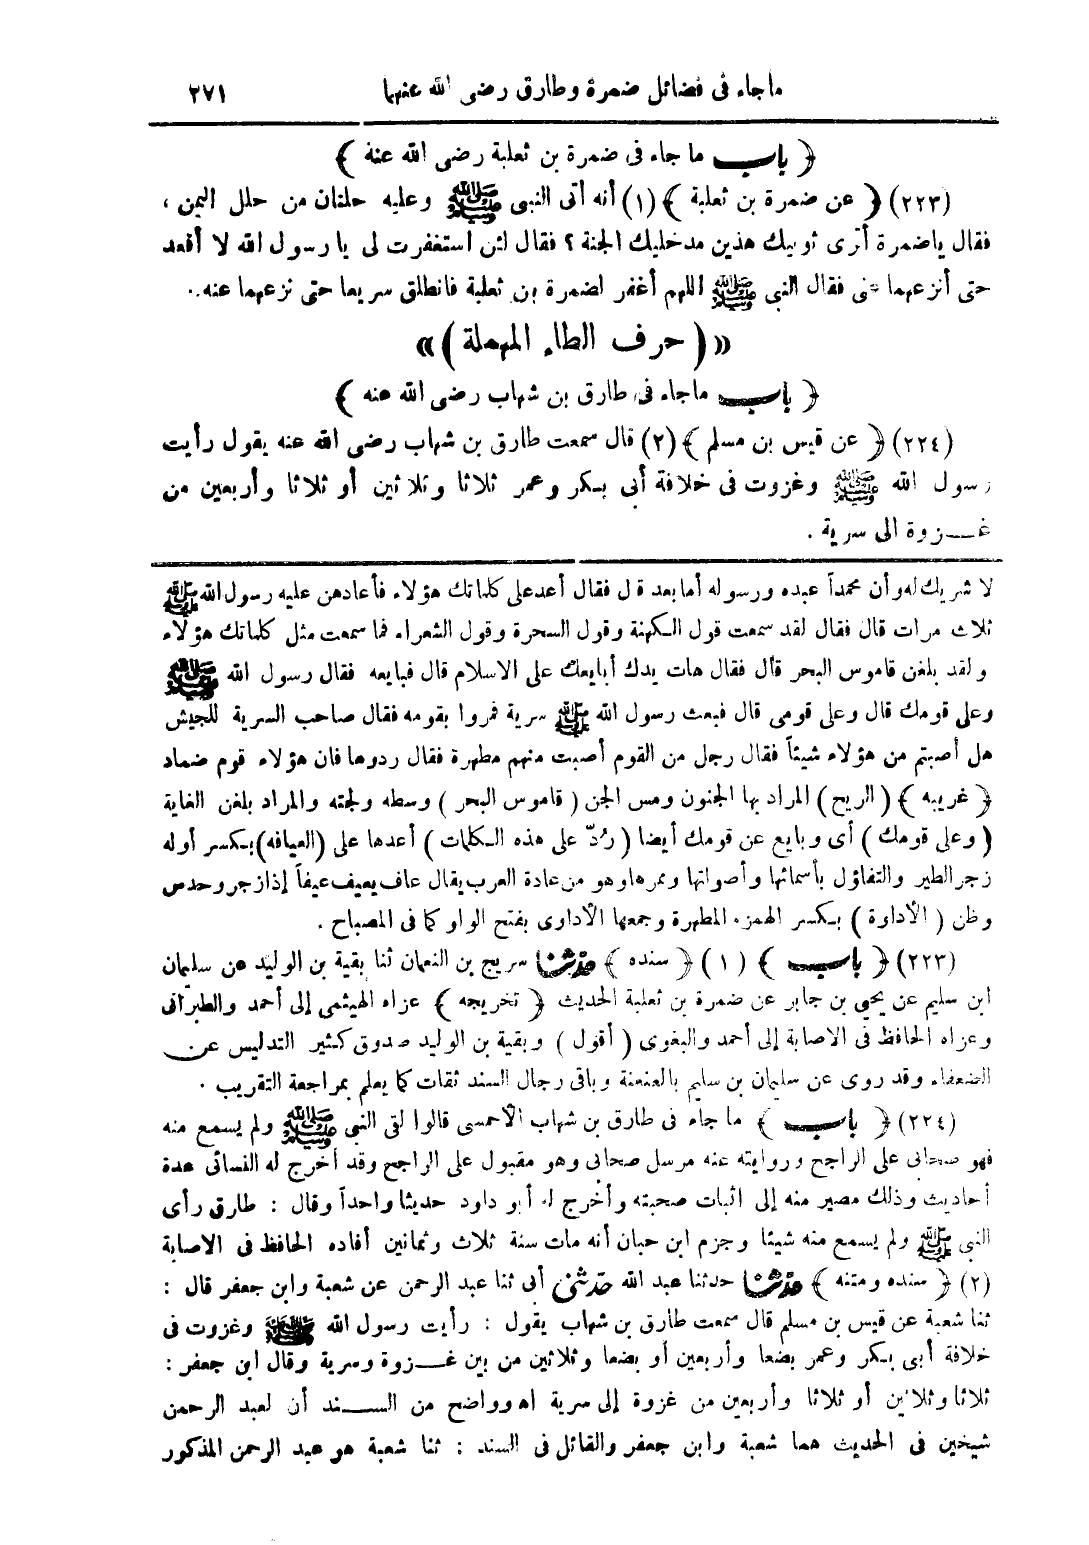 ما جاء فى فضائل ضمرة وطارق رضى الله عنهما ٢٧١
﴿ باب ما جاء فى ضمرة بن ثعلبة رضى الله عنه ﴾
(٢٢٣) ﴿ عن ضمرة بن ثعلبة ﴾ (١) أنه أتى النبى ﷺ وعليه حلتان من حلل اليمن ،
فقال ياضمرة أترى ثوبيك هذين مدخليك الجنة ؟ فقال لئن استغفرت لى يا رسول الله لا أقعد
حتى أنزعهما عنى فقال النبى ﷺ اللهم أغفر لضمرة بن ثعلبة فانطلق سريعا حتى نزعهما عنه .
«( حرف الطاء المهملة )»
﴿ باب ماجاء فى طارق بن شهاب رضى الله عنه ﴾
(٢٢٤) ﴿ عن قيس بن مسلم ﴾ (٢) قال سمعت طارق بن شهاب رضى الله عنه يقول رأيت
رسول الله ﷺ وغزوت فى خلافة أبى بكر وعمر ثلاثا وثلاثين أو ثلاثا وأربعين من
غـــزوة الى سرية .
لا شريك له وأن محمداً عبده ورسوله أما بعد قال فقال أعد على كلماتك هؤلاء فأعادهن عليه رسول الله ﷺ
ثلاث مرات قال فقال لقد سمعت قول الكهنة وقول السحرة وقول الشعراء فما سمعت مثل كلماتك هؤلاء
ولقد بلغن قاموس البحر قال فقال هات يدك أبايعك على الاسلام قال فبايعه فقال رسول الله ﷺ
وعلى قومك قال وعلى قومى قال فبعث رسول الله ﷺ سرية فمروا بقومه فقال صاحب السرية للجيش
هل أصبتم من هؤلاء شيئاً فقال رجل من القوم أصبت منهم مطهرة فقال ردوها فان هؤلاء قوم ضماد
﴿ غريبه ﴾ (الريح) المراد بها الجنون ومس الجن ( قاموس البحر ) وسطه ولجته والمراد بلغن الغاية
( وعلى قومك ) أى وبايع عن قومك أيضا ( رُدّ على هذه الكلمات ) أعدها على (العيافه) بكسر أوله
زجر الطير والتفاؤل بأسمائها وأصواتها وممرها وهو من عادة العرب يقال عاف يعيف عيفاً إذا زجر وحدس
وظن ( الأداوة ) بكسر الهمزة المطهرة وجمعها الأداوى بفتح الواو كما فى المصباح .
(٢٢٣) ﴿ باب ﴾ (١) ﴿ سنده ﴾ حدثنا سريج بن النعمان ثنا بقية بن الوليد عن سليمان
ابن سليم عن يحيى بن جابر عن ضمرة بن ثعلبة الحديث ﴿ تخريجه ﴾ عزاه الهيثمى إلى أحمد والطبرانى
وعزاه الحافظ فى الاصابة إلى أحمد والبغوى ( أقول ) وبقية بن الوليد صدوق كثير التدليس عن
الضعفاء وقد روى عن سليمان بن سليم بالعنعنة وباقى رجال السند ثقات كما يعلم بمراجعة التقريب .
(٢٢٤) ﴿ باب ﴾ ما جاء فى طارق بن شهاب الأحمسى قالوا لقى النبى ﷺ ولم يسمع منه
فهو صحابى على الراجح وروايته عنه مرسل صحابى وهو مقبول على الراجح وقد أخرج له النسائى عدة
أحاديث وذلك مصير منه إلى اثبات صحبته وأخرج له أبو داود حديثا واحداً وقال : طارق رأى
النبى ﷺ ولم يسمع منه شيئا وجزم ابن حبان أنه مات سنة ثلاث وثمانين أفاده الحافظ فى الاصابة
(٢) ﴿ سنده ومتنه ﴾ حدثنا حدثنا عبد الله حدثنى أبى ثنا عبد الرحمن عن شعبة وابن جعفر قال :
ثنا شعبة عن قيس بن مسلم قال سمعت طارق بن شهاب يقول : رأيت رسول الله ﷺ وغزوت فى
خلافة أبى بكر وعمر بضعا وأربعين أو بضعا وثلاثين من بين غـــزوة وسرية وقال ابن جعفر :
ثلاثا وثلاثين أو ثلاثا وأربعين من غزوة إلى سرية اه وواضح من الســـند أن لعبد الرحمن
شيخين فى الحديث هما شعبة وابن جعفر والقائل فى السند : ثنا شعبة هو عبد الرحمن المذكور